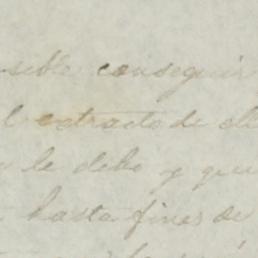 sible conseguir
l extracto de
le debo y que
hasta fines de